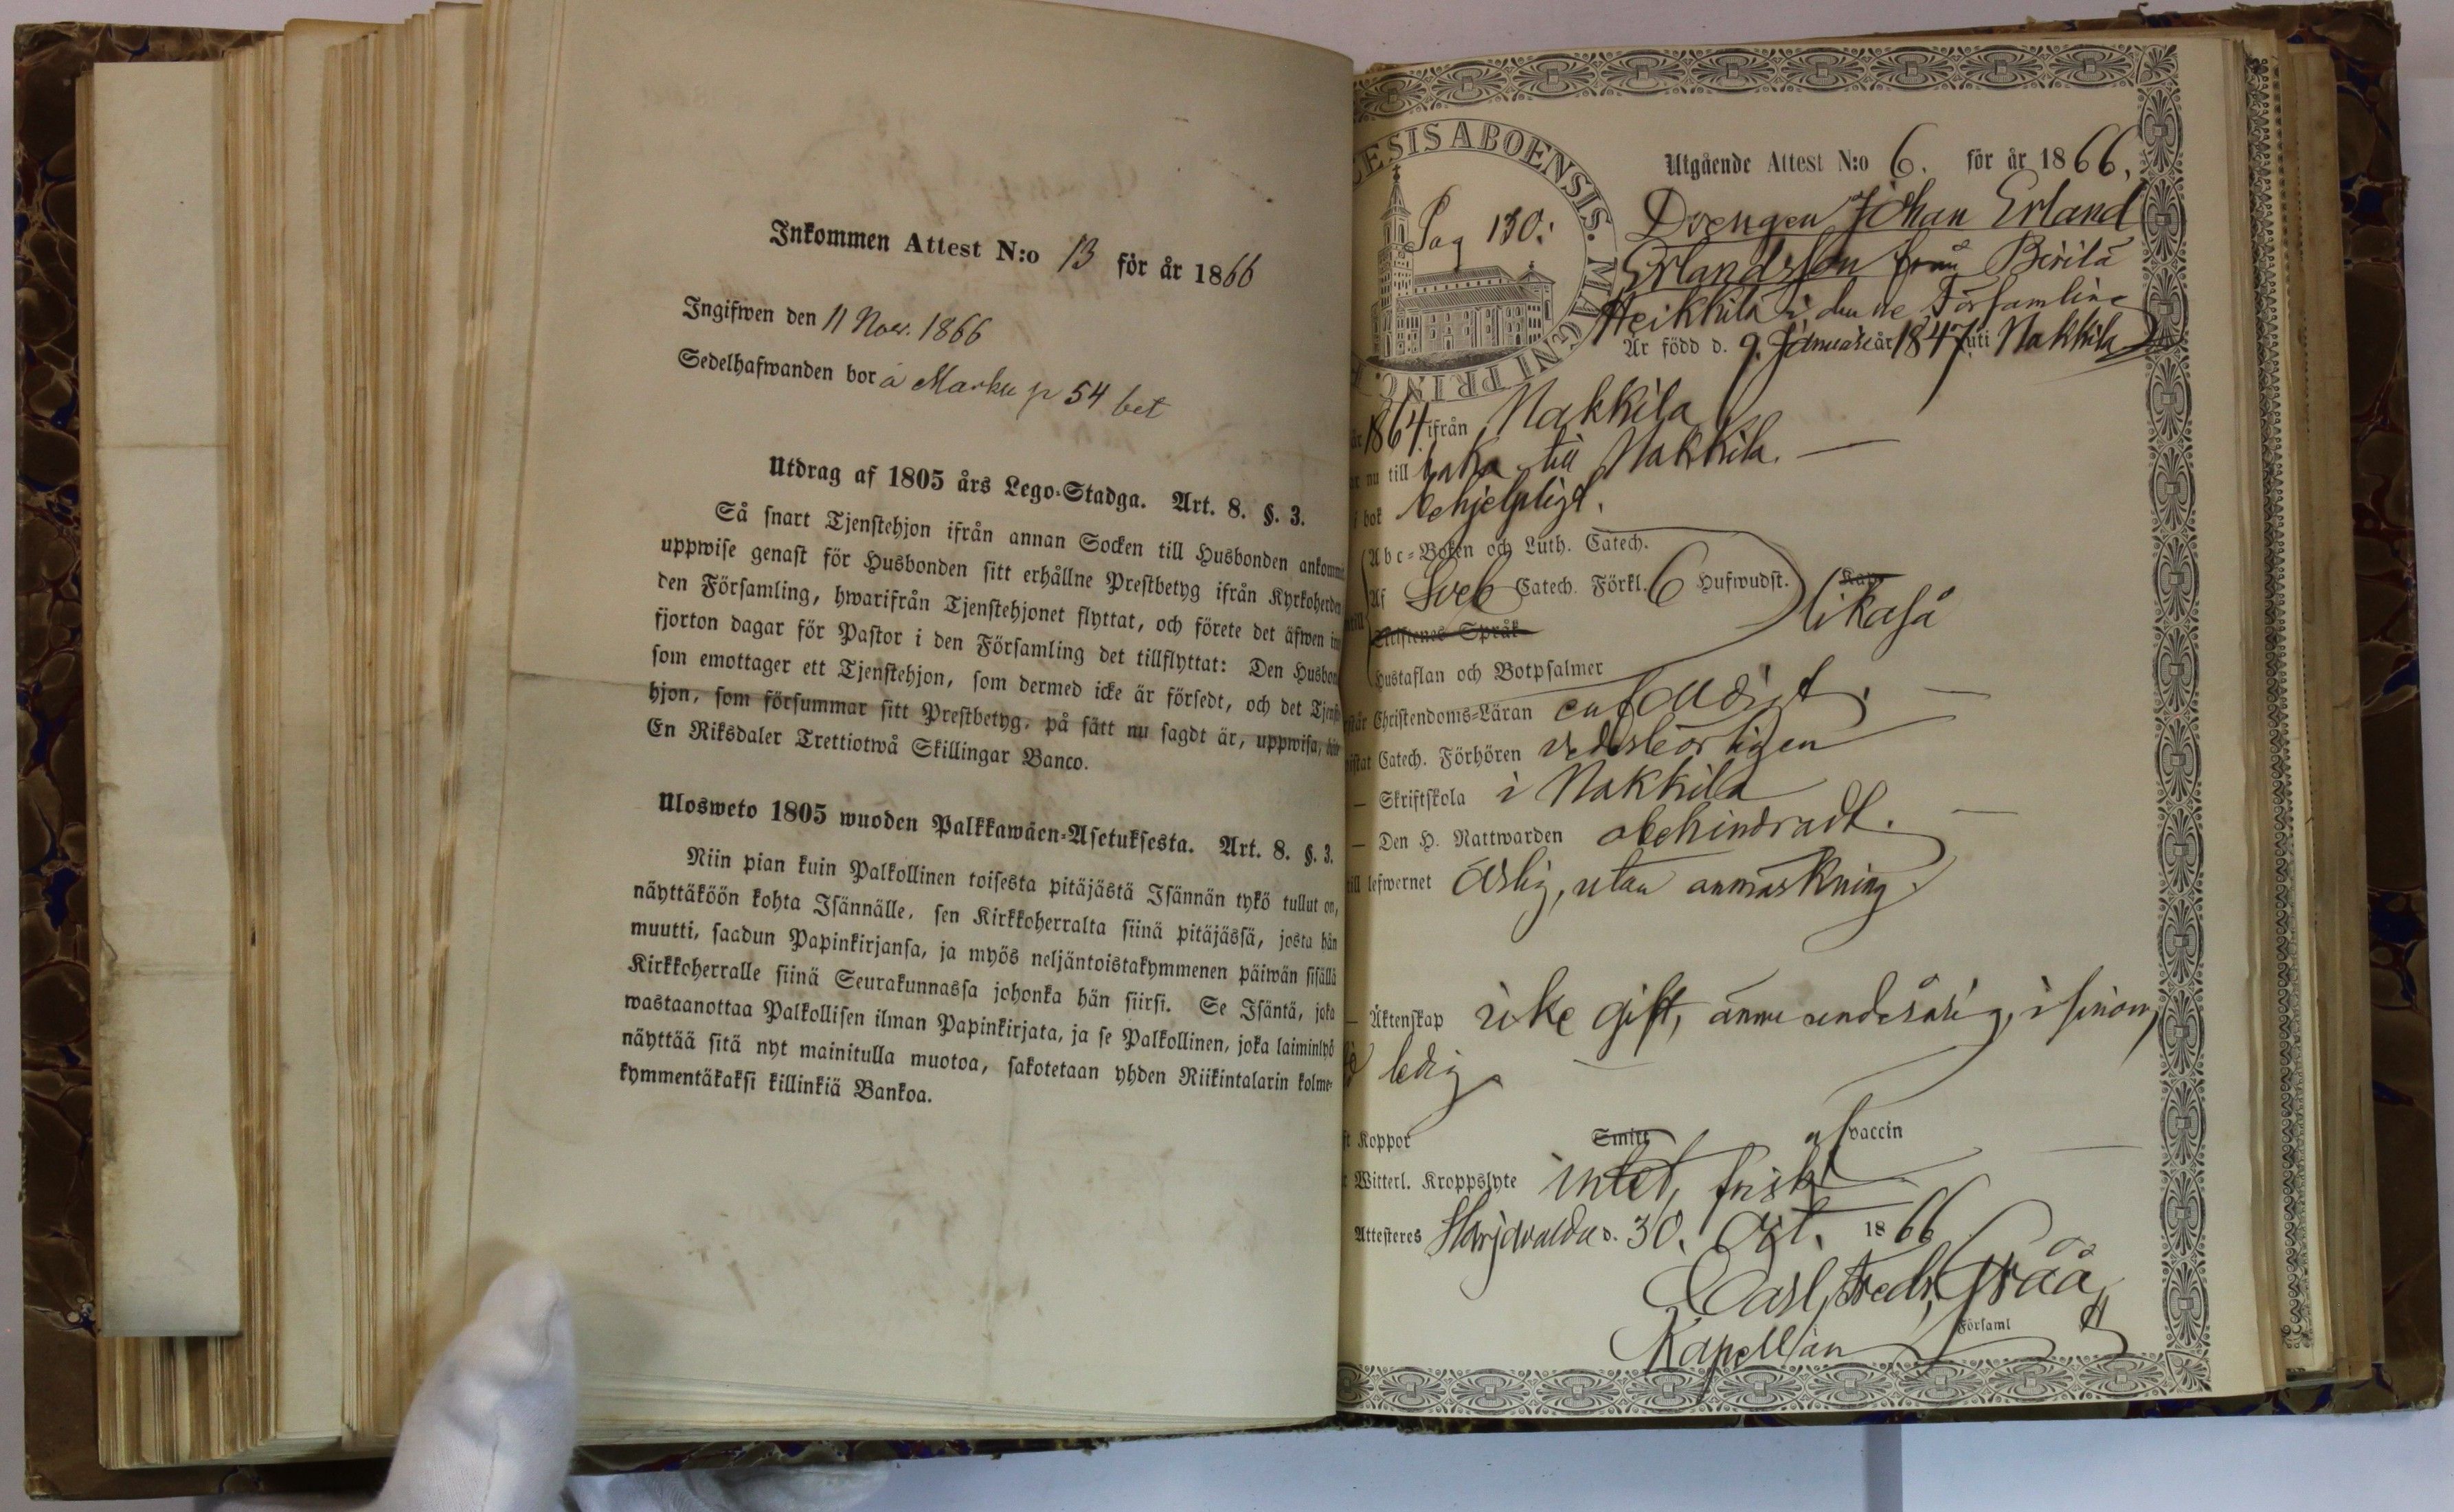 Inkommen Attest N:o 13 för år 1866
Ingifwen den 11 Nov. 1866
Sedelhafwanden bor å Marku p 54 bet
Utdrag af 1805 års Lego-Stadga. Art. 8. §. 3.
Så snart Tjenstehjon ifrån annan Socken till Husbonden ankomm
uppwise genast för Husbonden sitt erhållne Prestbetyg ifrån Kyrkoherden
den Församling, hwarifrån Tjenstehjonet flyttat, och förete det äfwen in
fjorton dagar för Pastor i den Församling det tillflyttat: Den Husbon
som emottager ett Tjenstehjon, som dermed icke är försedt, och det Tjenste
hjon, som försummar sitt Prestbetyg, på sätt nu sagdt är, uppwisa, bör
En Riksdaler Trettiotwå Skillingar Banco.
Ulosweto 1805 wuoden Palkkawäen-Asetuksesta. Art. 8. §. 3.
Niin pian kuin Palkollinen toisesta pitäjästä Isännän tykö tullut on,
näyttäköön kohta Isännälle, sen Kirkkoherralta siinä pitäjässä, josta hän
muutti, saadun Papinkirjansa, ja myös neljäntoistakymmenen päiwän sisällä
Kirkkoherralle siinä Seurakunnassa johonka hän siirsi. Se Isäntä, joka
wastaanottaa Palkollisen ilman Papinkirjata, ja se Palkollinen, joka laiminlyö
näyttää sitä nyt mainitulla muotoa, sakotetaan yhden Riikintalarin kolme-
kymmentäkaksi killinkiä Bankoa.
ESIS ABOENSIS. MAGNI PRINC.
Pag 130:
Utgående Attest N:o 6. för år 1866.
Drengen Johan Erland
Erlandsson från Birilä
Heikkilä i denne Församling
Är född d. 9. Januarii år 1847 uti Nakkila
år 1864 ifrån Nakkila
nu till baka till Nakkila.
i bok behjelpligt.
Abc-Boken och Luth. Catech.
Af Sveb Catech. Förkl. 6 Hufwudst. Kap. likaså
Athanasii Språk
Hustaflan och Botpsalmer
står Christendoms-Läran enfaldigt.
wistat Catech. Förhören vederbörligen
— Skriftskola i Nakkila
— Den H. Nattwarden obehindradt.
till lefwernet ärlig, utan anmärkning
— Äktenskap icke gift, ännu underårig, i sinom
ledig
Koppor Smitt af vaccin
Witterl. Kroppslyte intet, frisk
Attesteres Harjavalda d. 30. Oct. 1866
Carl Fredr. Gråå
Kapellan Församl